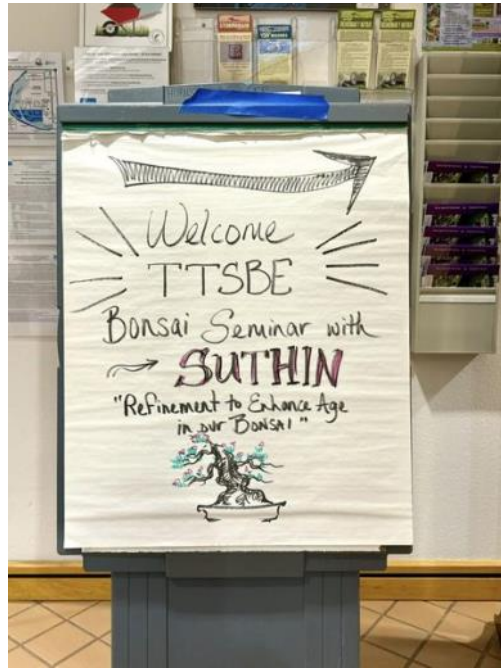 Welcome
TTSBE
Bonsai Seminar with
SUTHIN
"Refinement to Enhance Age
in our BONSAI"